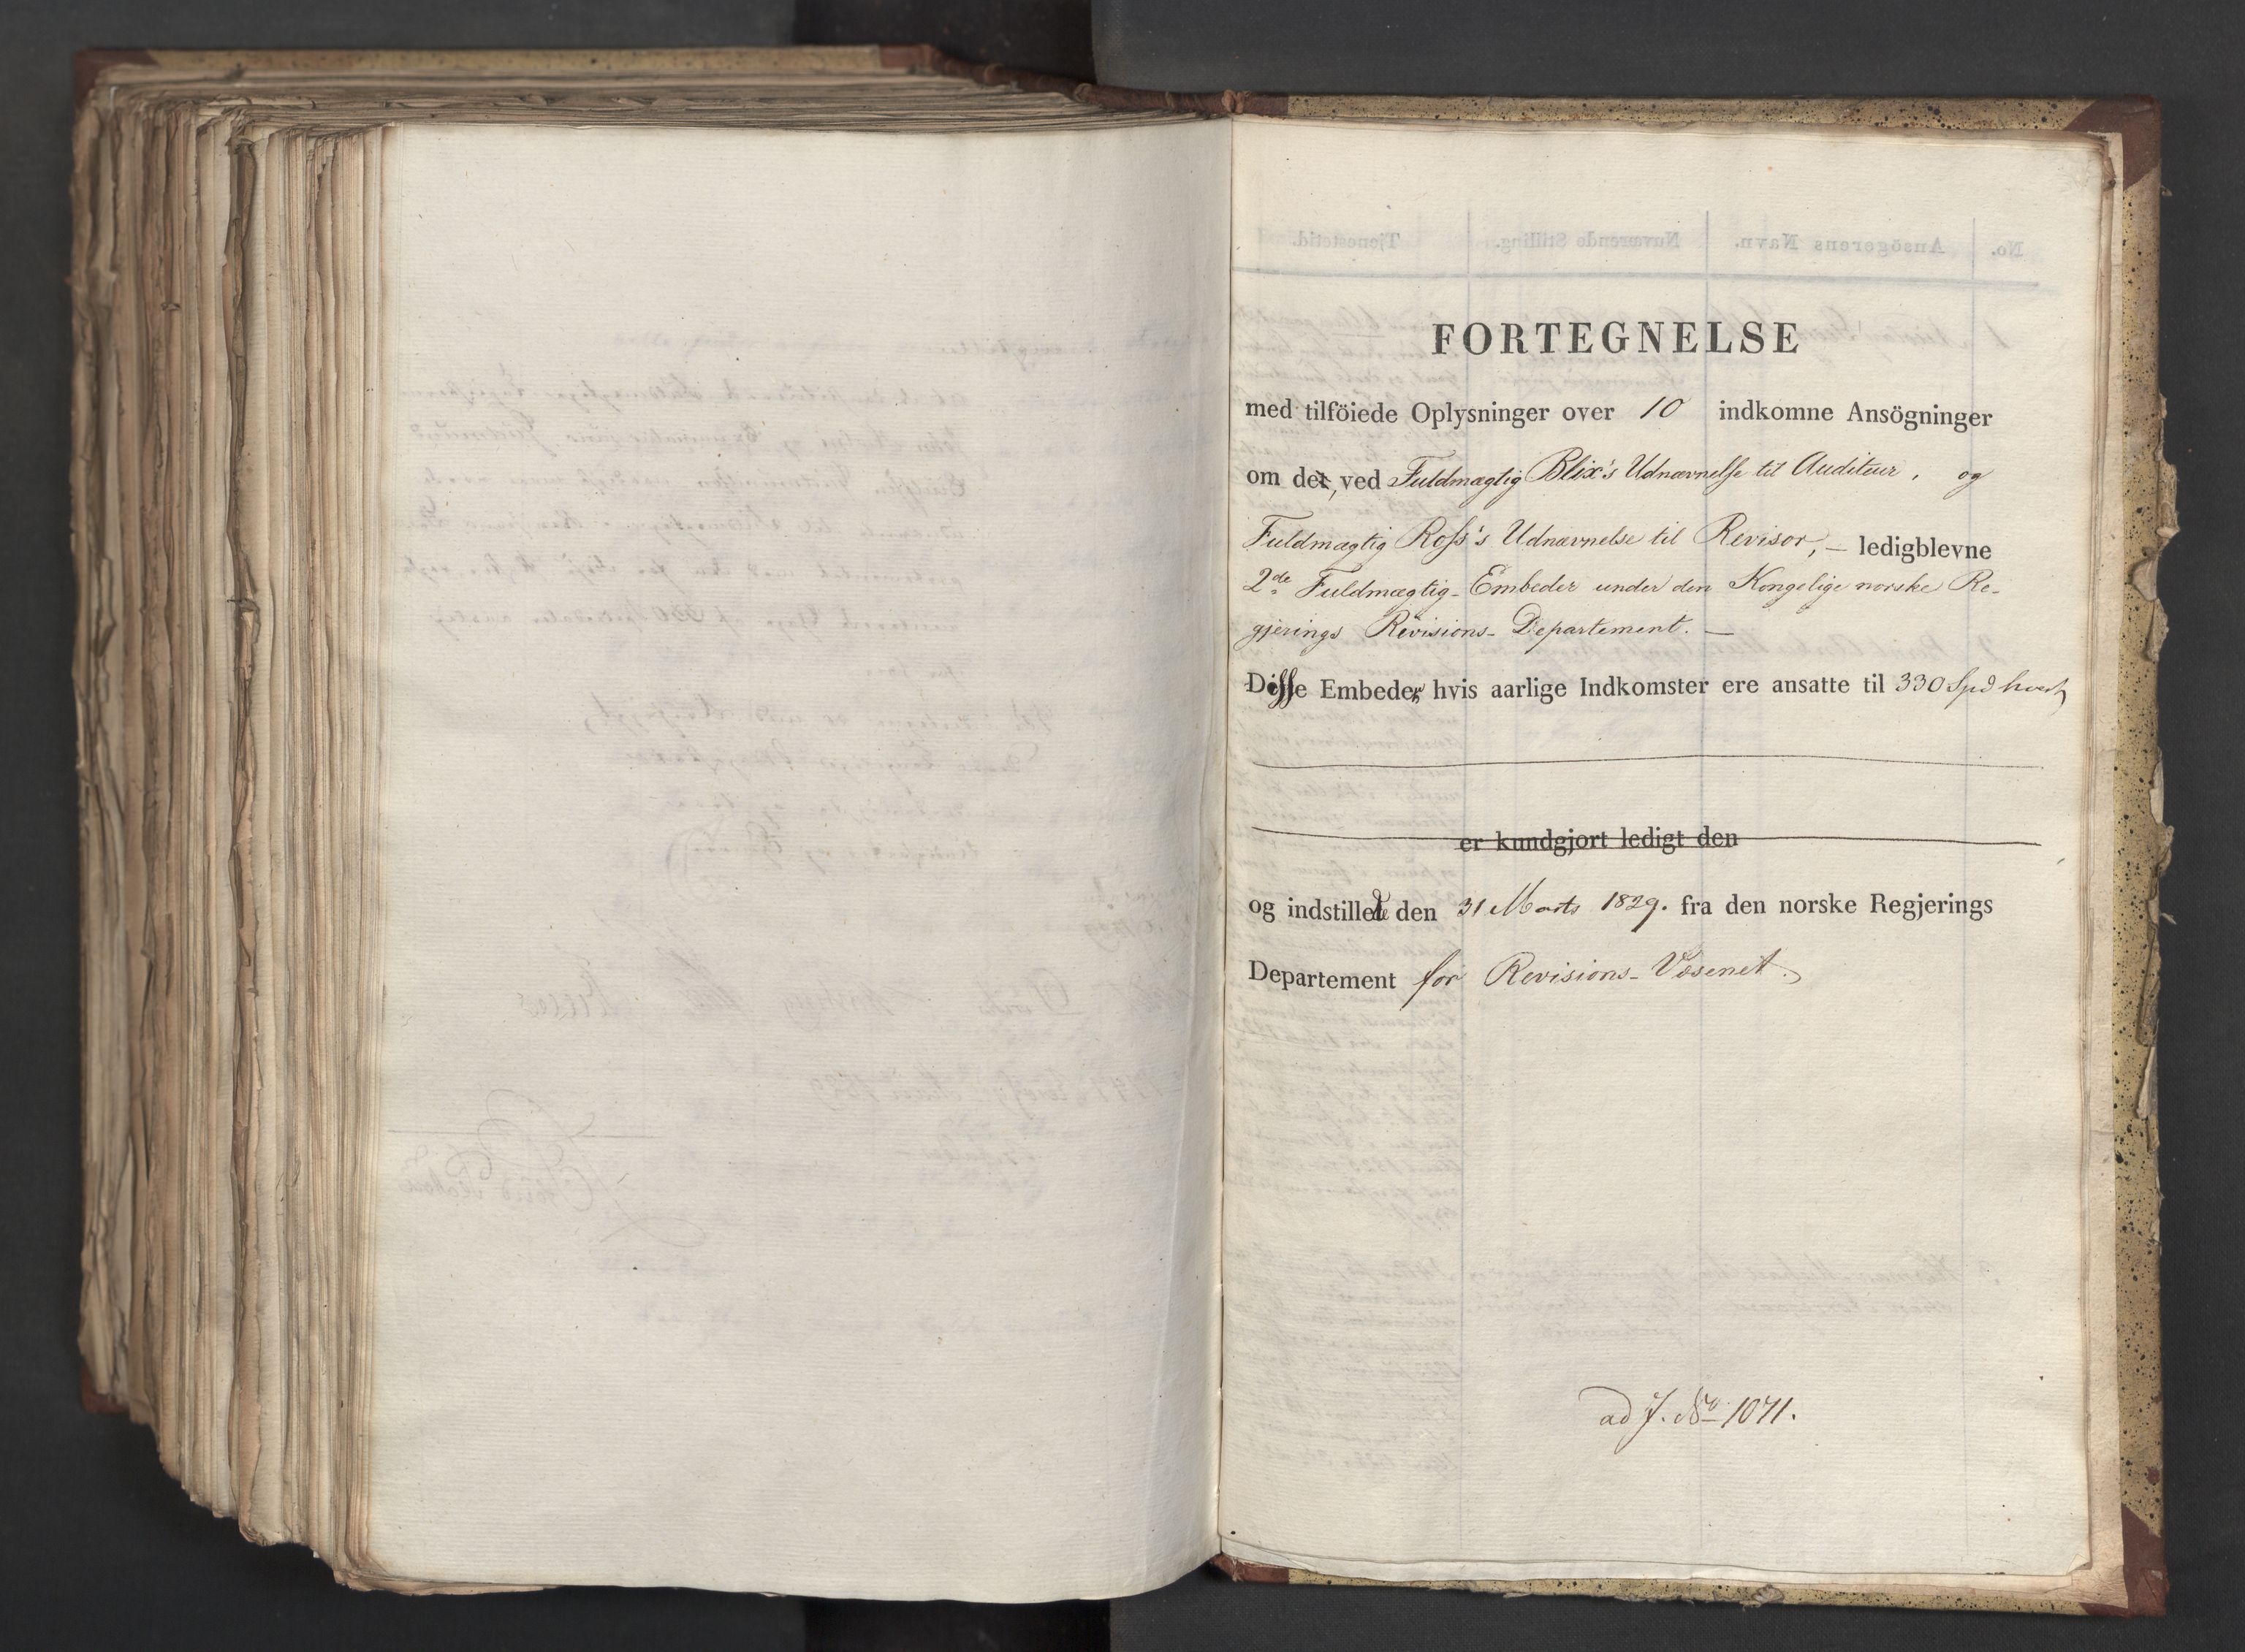 FORTEGNELSE
med tilföiede Oplysninger over 10 indkomne Ansögninger
om de, ved Fuldmægtig Blix's Udnævnelse til Auditeur, og
Fuldmægtig Ross's Udnævnelse til Revisor, — ledigblevne
2de Fuldmægtig-Embeder under den Kongelige norske Re-
gjerings Revisions-Departement. —
Disse Embeder, hvis aarlige Indkomster ere ansatte til 330 Spd hvert,
er kundgjort ledigt den
og indstillede den 31 Marts 1829. fra den norske Regjerings
Departement for Revisions-Væsenet.
ad J. No 1071.